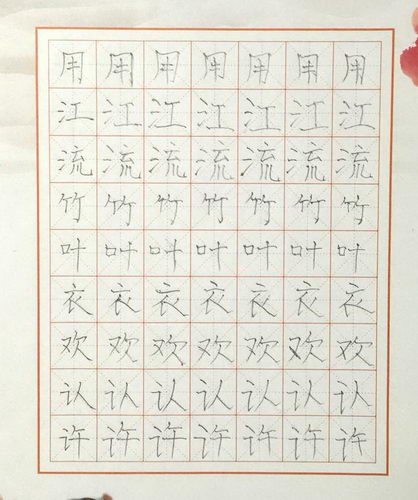 用用用用用用用
江江江江江江江
流流流流流流流
竹竹竹竹竹竹竹
叶叶叶叶叶叶叶
衣衣衣衣衣衣衣
欢欢欢欢欢欢欢
认认认认认认认
许许许许许许许